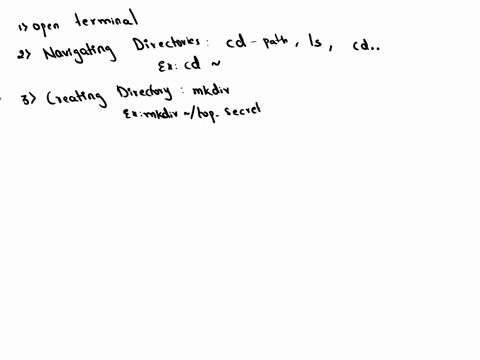 1) open terminal
2) Navigating Directories: cd - path, ls, cd..
Ex: cd ~
3) Creating Directory: mkdir
Ex: mkdir ~/top-secret